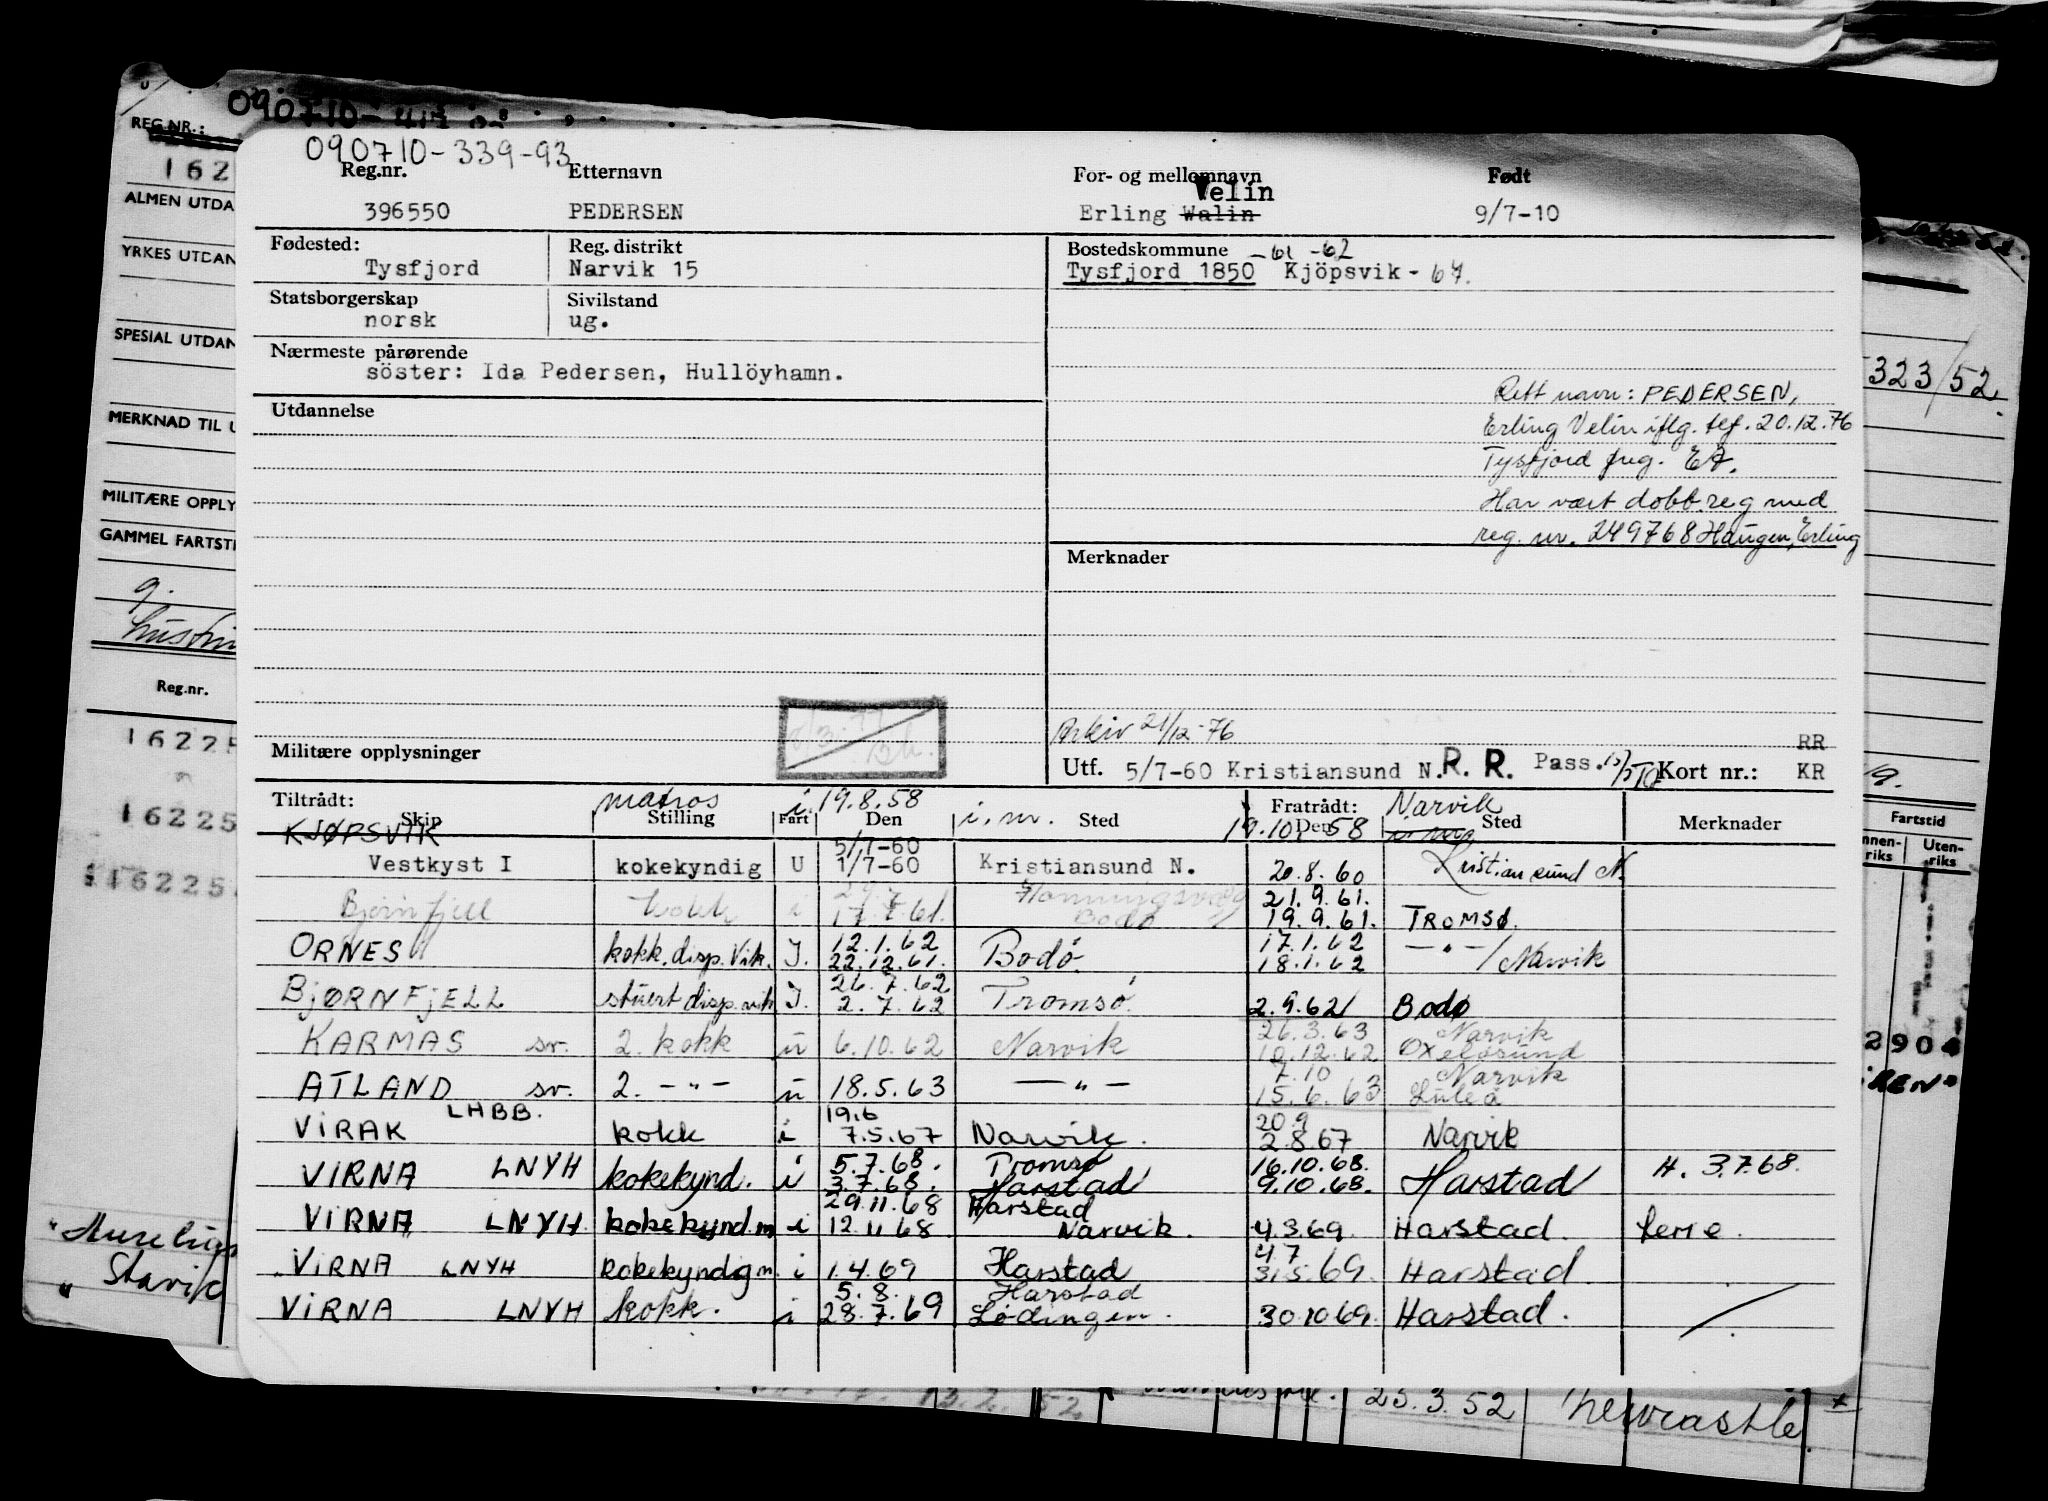 090710-
090710-339-93
REG.NR.:
162
ALMEN UTDA
YRKES UTDAN
SPESIAL UTDAN
MERKNAD TIL U
MILITÆRE OPPLY
GAMMEL FARTSTI
Reg.nr.
16225
16225
16225
Stavik
Reg.nr. Etternavn For- og mellomnavn Født
Velin
396550 PEDERSEN Erling Walin 9/7-10
Fødested: Reg. distrikt Bostedskommune -61 -62
Tysfjord Narvik 15 Tysfjord 1850 Kjöpsvik - 67.
Statsborgerskap Sivilstand
norsk ug.
Nærmeste pårørende
söster: Ida Pedersen, Hullöyhamn.
Utdannelse
Rett navn: PEDERSEN,
Erling Velin iflg. tlf. 20.12.76
Tysfjord freg. EJ.
Har vært dobb.reg med
reg. nr. 249768 Haugen, Erling
Merknader
Arkiv 21/12-76
Militære opplysninger RR
Utf. 5/7-60 Kristiansund N. R. R. Pass. Kort nr.: KR
Tiltrådt: matros i. 19.8.58 i.nr. Fratrådt: Narvik
Skip Stilling Fart Den Sted Den Sted Merknader
KJØPSVIK 19.10.58
5/7-60
Vestkyst I kokekyndig U 1/7-60 Kristiansund N. 20.8.60 Kristiansund N.
Honningsvåg 21.9.61.
Bjørnfjell kokk i 17.7.61. Bodø 19.9.61. TROMSØ.
12.1.62 17.1.62
ORNES kokk.disp.Vik. I. 22.12.61. Bodö. 18.1.62 -"-/Narvik
26.7.62
BJØRNFJELL stuert disp.vik I. 2.7.62 Tromsø. 2.9.62 Bodø
26.3.63 Narvik
KARMAS sv. 2. kokk u 6.10.62 Narvik 10.12.62 Oxelösund
7.10 Narvik
ATLAND sv. 2. -"- u 18.5.63 -"- 15.6.63 Luleå
LHBB. 19.6 20.9
VIRAK kokk i 7.5.67 Narvik. 2.8.67 Narvik
5.7.68. Tromsø 16.10.68.
VIRNA LNYH kokekynd. i 3.7.68. Harstad 9.10.68. Harstad H. 3.7.68.
29.11.68 Harstad
VIRNA LNYH. kokekynd.m i 12.11.68 Narvik. 4.3.69. Harstad. ferie.
4.7
VIRNA LNYH kokekyndig m. i 1.4.69 Harstad 31.5.69. Harstad.
5.8. Harstad
VIRNA LNYH kokk. i 28.7.69 Lødingen. 30.10.69. Harstad.
323/52.
Fartstid
nnen-riks Uten-riks
2904
23.3.52 Newcastle